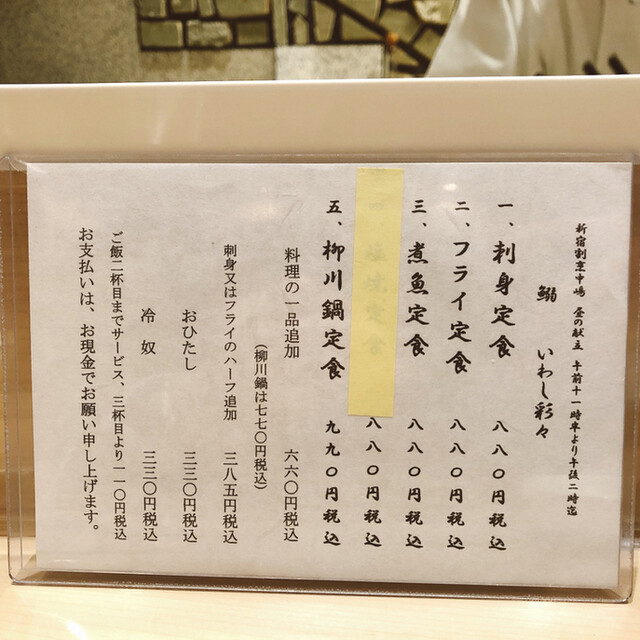 新宿割烹中嶋 昼の献立 午前十一時半より午後二時迄
鰯 いわし彩々
一、刺身定食 八八〇円税込
二、フライ定食 八八〇円税込
三、煮魚定食 八八〇円税込
八八〇円税込
五、柳川鍋定食 九九〇円税込
料理の一品追加 六六〇円税込
（柳川鍋は七七〇円税込）
刺身又はフライのハーフ追加 三八五円税込
おひたし 三三〇円税込
冷奴 三三〇円税込
ご飯二杯目までサービス、三杯目より一一〇円税込
お支払いは、お現金でお願い申し上げます。